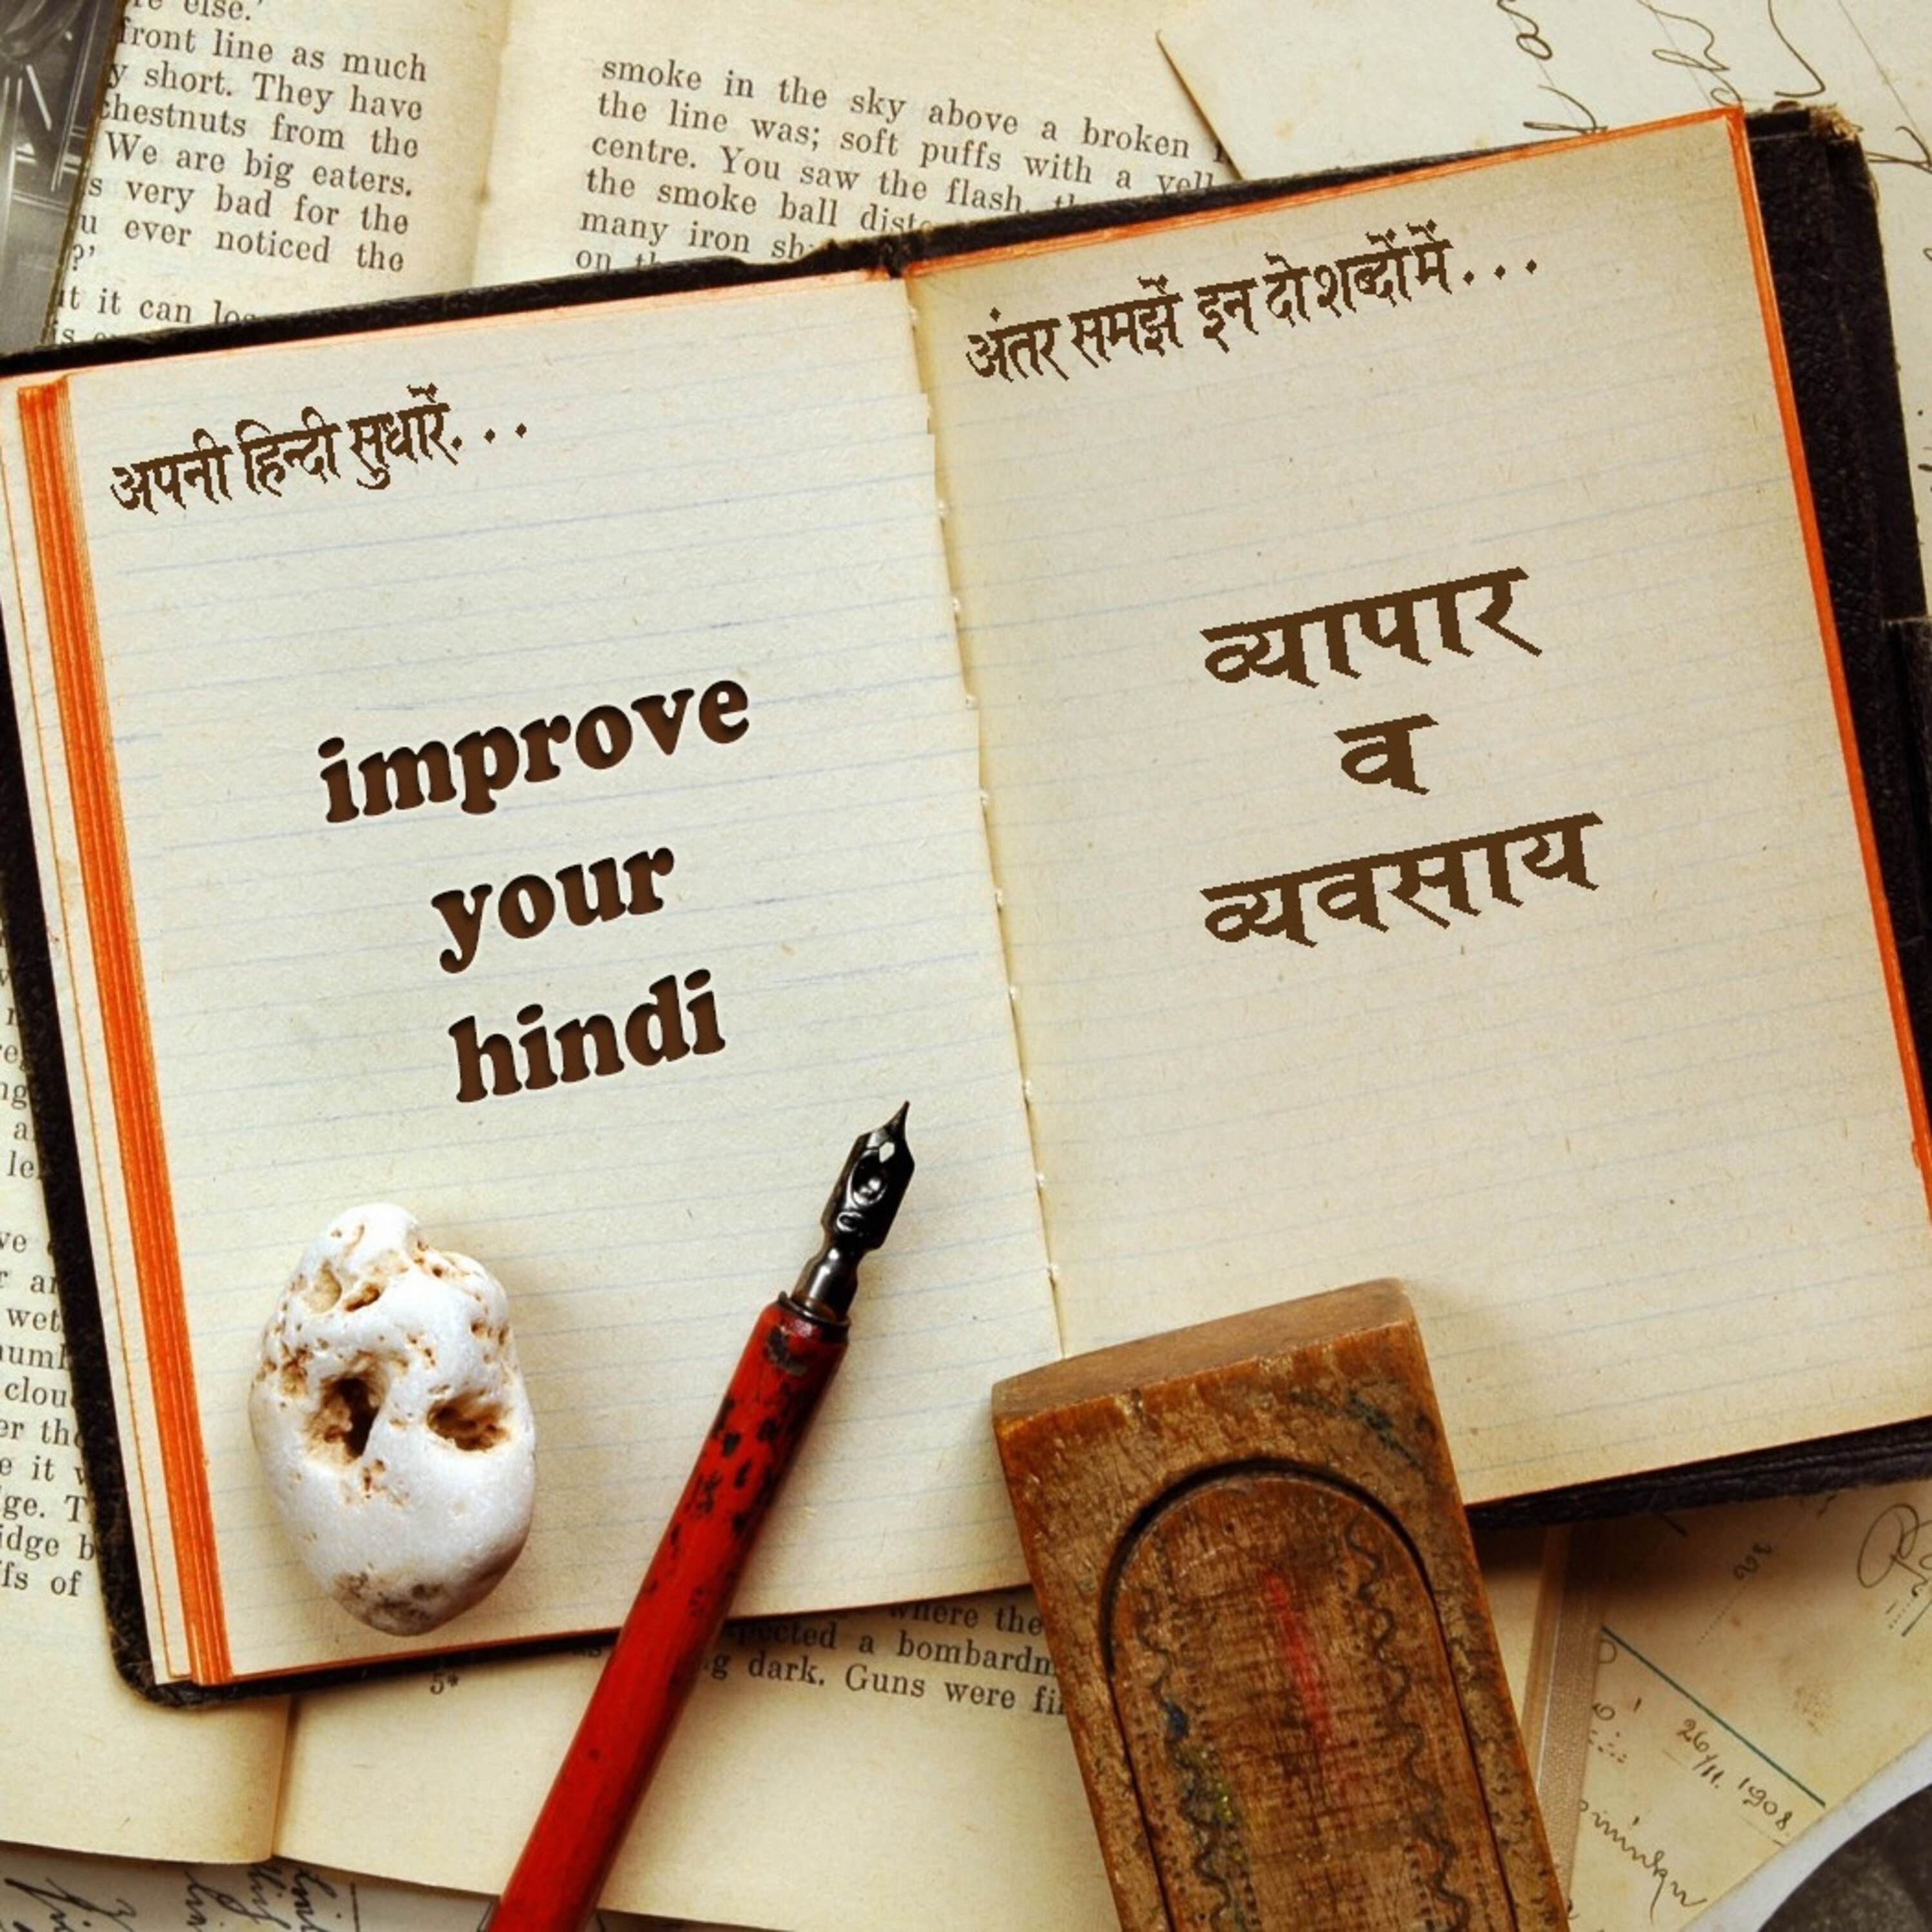 re else.'
front line as much
y short. They have
chestnuts from the
We are big eaters.
s very bad for the
u ever noticed the
?'
it it can
smoke in the sky above a broken
the line was; soft puffs with a yell
centre. You saw the flash,
the smoke ball
many iron
on
अपनी हिन्दी सुधारें...
improve
your
hindi
अंतर समझें इन दो शब्दों में...
व्यापार
व
व्यवसाय
where the
a bombardm
g dark. Guns were
5*
wet
clou
er the
e it
ge. T
idge b
fs of
26/11. 1908.